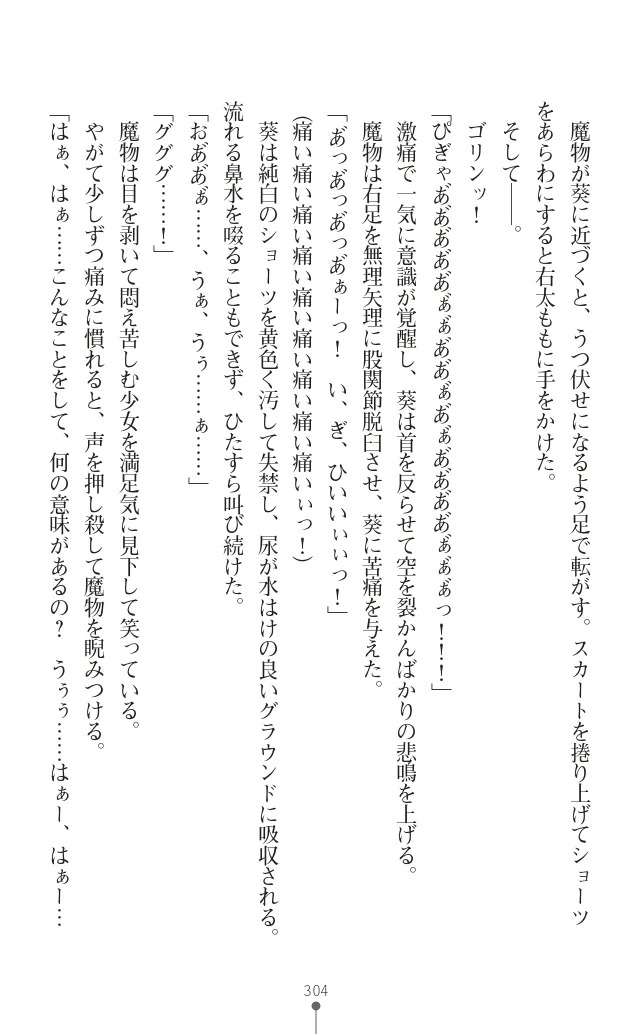 魔物が葵に近づくと、うつ伏せになるよう足で転がす。スカートを捲り上げてショーツ
をあらわにすると右太ももに手をかけた。
そして――。
ゴリンッ！
「ぴぎゃあ゙あ゙あ゙あ゙あ゙ぁぁあ゙あ゙ぁあ゙ぁあ゙あ゙あ゙あ゙ぁぁぁっ！！！」
激痛で一気に意識が覚醒し、葵は首を反らせて空を裂かんばかりの悲鳴を上げる。
魔物は右足を無理矢理に股関節脱臼させ、葵に苦痛を与えた。
「あ゙っあ゙っあ゙っあ゙ぁーっ！　い、ぎ、ひいいぃぃっ！」
（痛い痛い痛い痛い痛い痛い痛い痛い痛いぃっ！）
葵は純白のショーツを黄色く汚して失禁し、尿が水はけの良いグラウンドに吸収される。
流れる鼻水を啜ることもできず、ひたすら叫び続けた。
「おあ゙あ゙ぁ……、うぁ、うぅ……ぁ……」
「グググ……！」
魔物は目を剥いて悶え苦しむ少女を満足気に見下して笑っている。
やがて少しずつ痛みに慣れると、声を押し殺して魔物を睨みつける。
「はぁ、はぁ……こんなことをして、何の意味があるの？　うぅぅ……はぁー、はぁー…
304